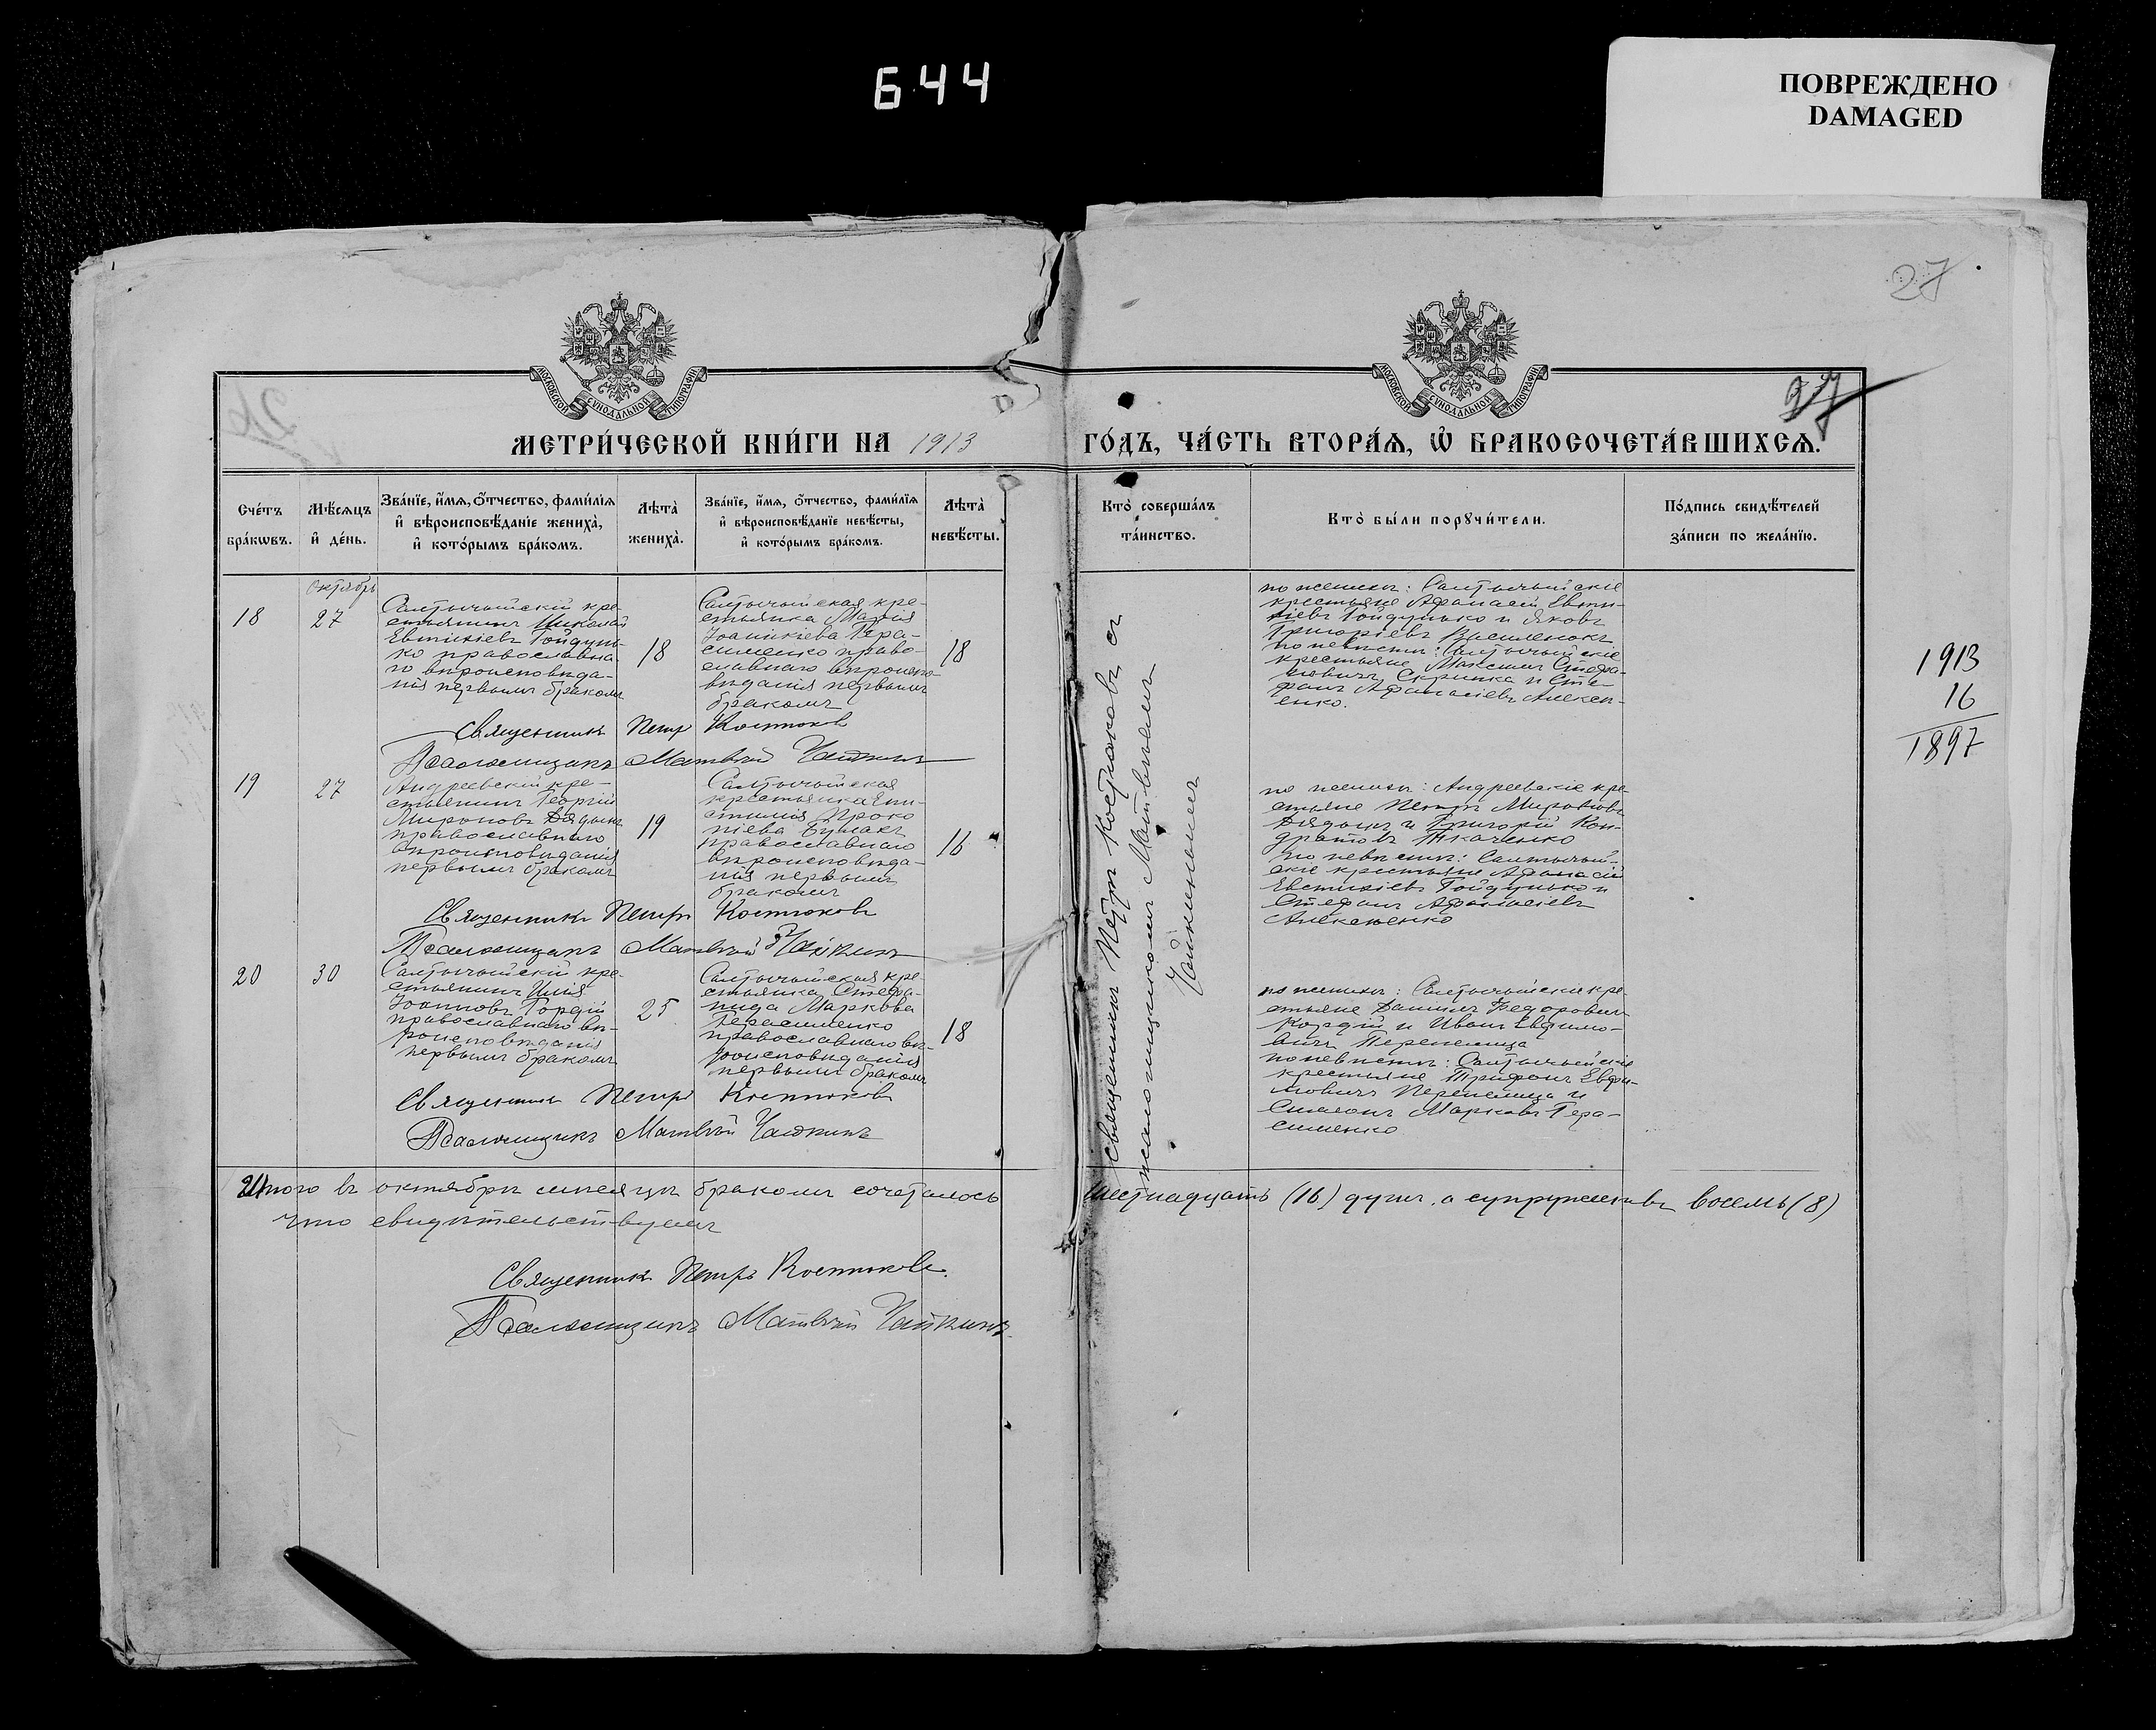 644
ПОВРЕЖДЕНО
DAMAGED
27
МОСКОВСКОЙ СУНОДАЛЬНОЙ ТИПОГРАФІИ
МОСКОВСКОЙ СУНОДАЛЬНОЙ ТИПОГРАФІИ
27
МЕТРИ́ЧЕСКОЙ КНИ́ГИ НА 1913 ГО́ДЪ, ЧА́СТЬ ВТОРА́Я, Ѡ҆ БРАКОСОЧЕТА́ВШИХСЯ.
Сче́тъ
бра́кѡвъ.
Мѣ́сяцъ
и҆ де́нь.
Зва́нїе, и҆́мя, ѻ҆́тчество, фами́лїя
и҆ вѣроисповѣ́данїе жениха̀,
и҆ кото́рымъ бра́комъ.
Лѣта̀
жениха̀.
Зва́нїе, и҆́мя, ѻ҆́тчество, фами́лїя
и҆ вѣроисповѣ́данїе невѣ́сты,
и҆ кото́рымъ бра́комъ.
Лѣта̀
невѣ́сты.
Кто̀ соверша́лъ
та́инство.
Кто̀ бы́ли порꙋчи́тели.
По́дпись свидѣ́телей
за́писи по жела́нїю.
Октябрь
18
27
Салтычьийскій кре-
стьянинъ Николай
Евтихіевъ Гойдунь-
ко православна-
го вѣроисповѣда-
нія первымъ бракомъ
18
Салтычьийская кре-
стьянка Марія
Іоаникіева Гера-
сименко право-
славнаго вѣроиспо-
вѣданія первымъ
бракомъ
18
по женихѣ: Салтычьийскіе
крестьяне Афанасій Евти-
хіевъ Гойдунько и Яковъ
Григоріевъ
по невѣстѣ: Салтычьийскіе
крестьяне Максимъ Стефа-
новичъ Скрипка и Сте-
фанъ Афанасіевъ Алексе-
енко.
Священникъ Петръ Костюковъ
Псаломщикъ Матвѣй Чайкинъ
19
27
Андреевскій кре-
стьянинъ Георгій
Мироновъ Дядынъ
православнаго
вѣроисповѣданія
первымъ бракомъ
19
Салтычьийская
крестьянка Епи-
стимія Проко
піева Бушакъ
православнаго
вѣроисповѣда-
нія первымъ
бракомъ
16
по женихѣ: Андреевскіе кре-
стьяне Петръ Мироновъ
Дядынъ и Григорій Кон-
дратовъ Ткаченко
по невѣстѣ: Салтычьий-
скіе крестьяне Афанасій
Евтихіевъ Гойдунько и
Стефанъ Афанасіевъ
Алексеенко
Священникъ Петръ Костюковъ
Псаломщикъ Матвѣй Чайкинъ
20
30
Салтычьийскій кре-
стьянинъ Илія
Іоанновъ Гордій
православнаго вѣ-
роисповѣданія
первымъ бракомъ
25
Салтычьийская кре-
стьянка Стефа-
нида Маркова
Герасименко
православнаго вѣ-
роисповѣданія
первымъ бракомъ
18
по женихѣ: Салтычьийскіе кре-
стьяне Даниилъ Федоровичъ
и Иванъ Евфимо-
вичъ Перепелица
по невѣстѣ: Салтычьийскіе
крестьяне Трифонъ Евфи-
мовичъ Перепелица и
Симеонъ Марковъ Гера-
сименко
Священникъ Петръ Костюковъ
Псаломщикъ Матвѣй Чайкинъ
Священникъ Петръ Костюковъ съ
псаломщикомъ Матвѣемъ
Чайкинымъ
1913
16
1897
Итого въ октябрѣ мѣсяцѣ бракомъ сочеталось шестнадцать (16) душъ, а супружествъ восемь (8)
что свидѣтельствуемъ
Священникъ Петръ Костюковъ.
Псаломщикъ Матвѣй Чайкинъ.